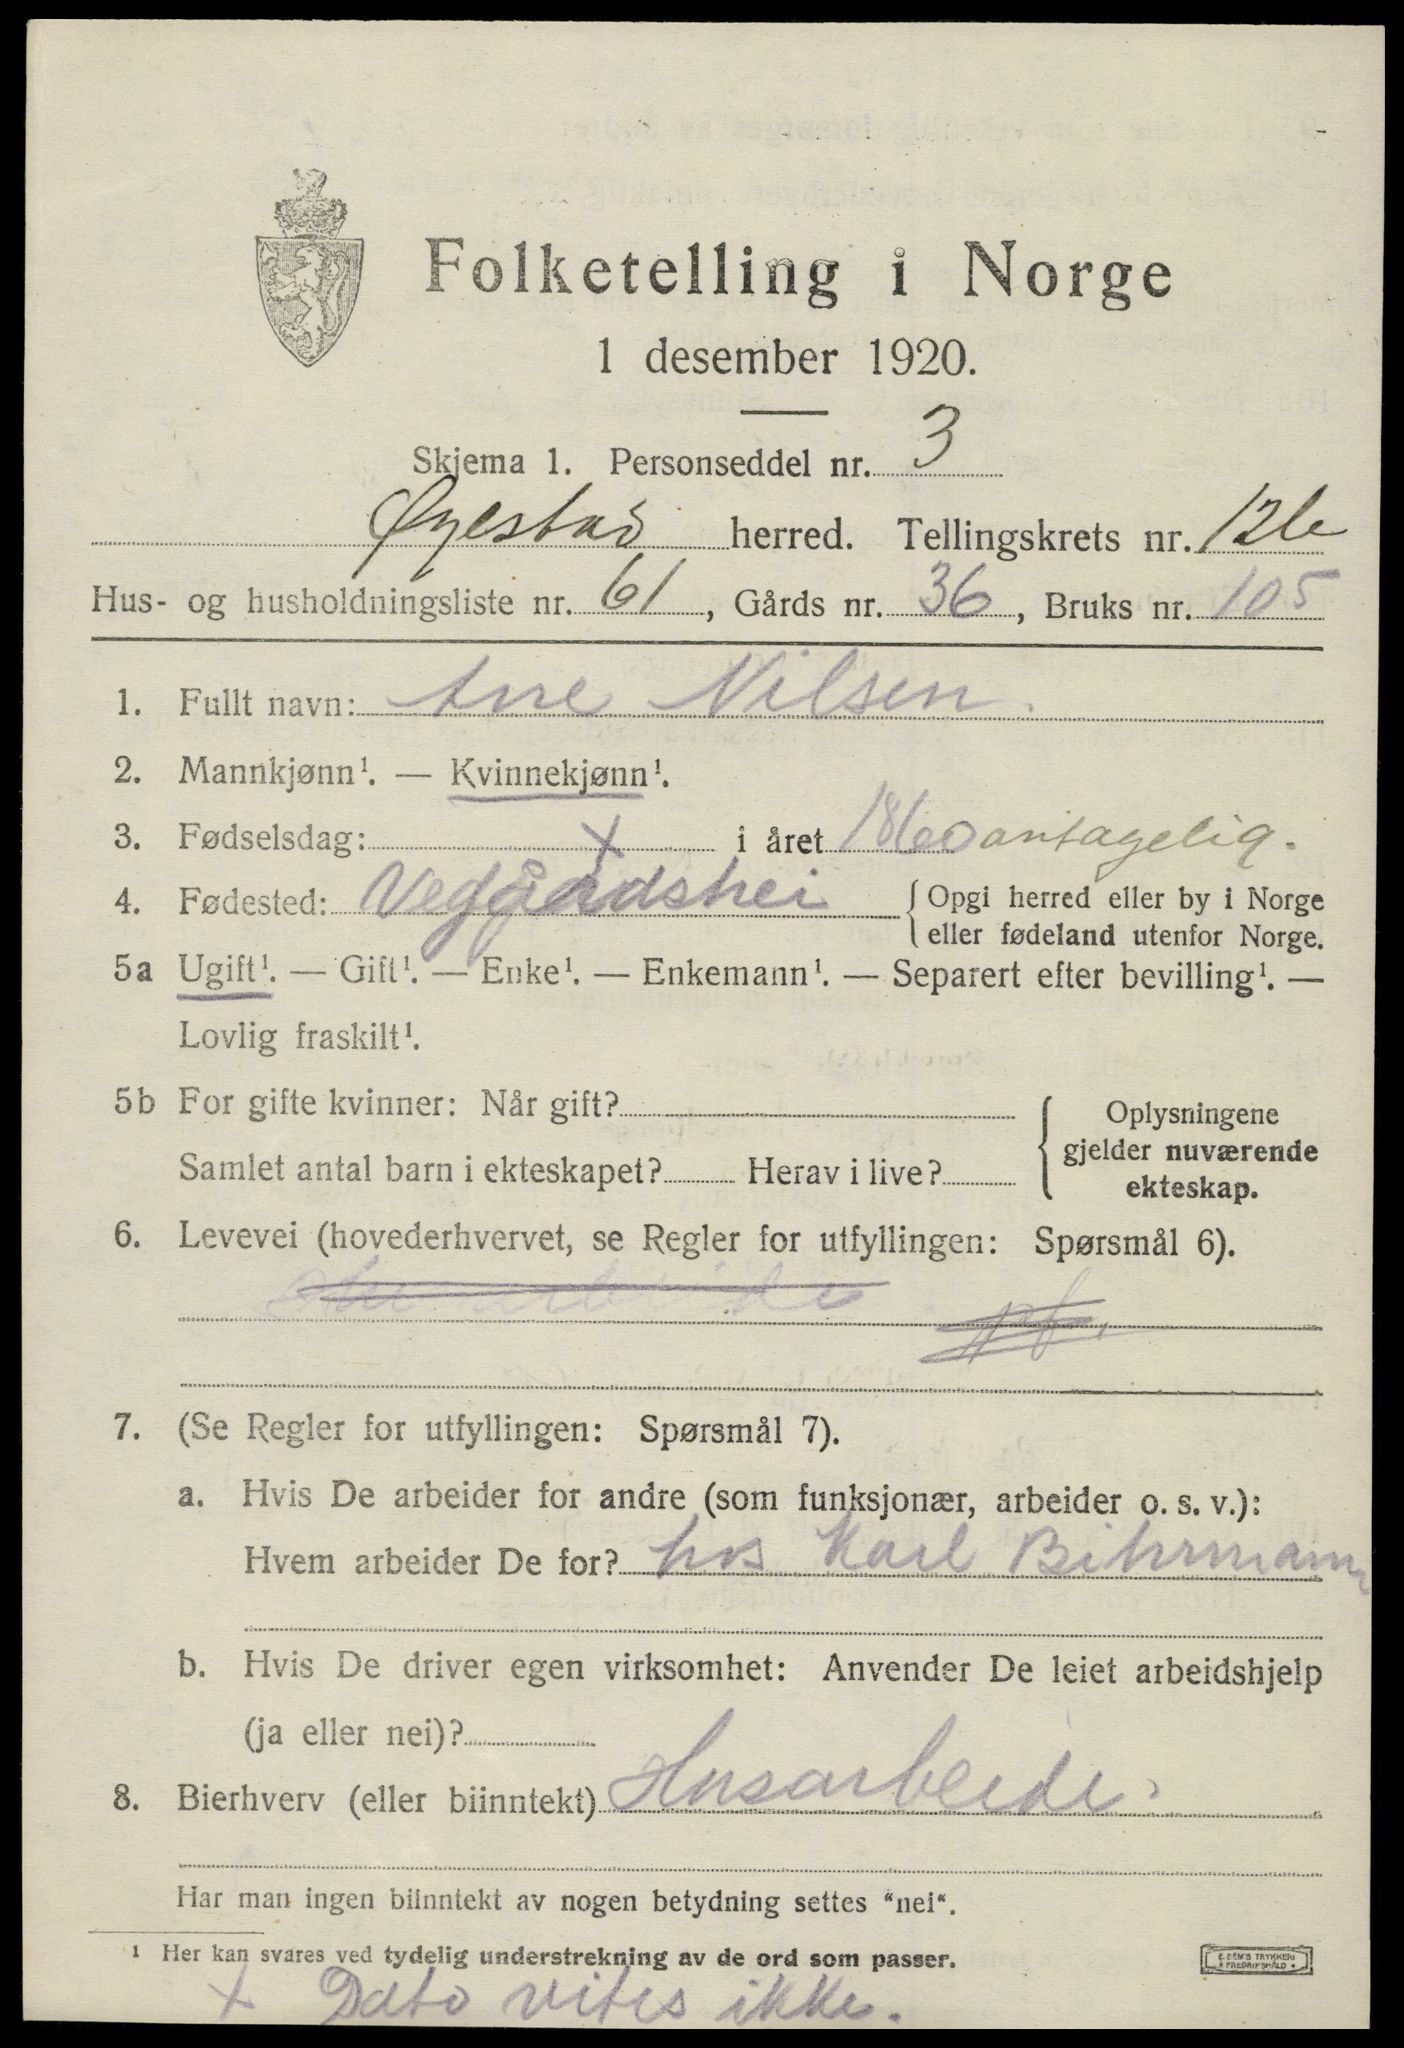 Folketelling i Norge
1 desember 1920.
Skjema 1. Personseddel nr. 3
Øyestad herred. Tellingskrets nr. 12b
Hus- og husholdningsliste nr. 61, Gårds nr. 36, Bruks nr. 105
1. Fullt navn: Ane Nilsen.
2. Mannkjønn¹. — Kvinnekjønn¹.
3. Fødselsdag: + i året 1860 antagelig.
4. Fødested: Vegårdshei { Opgi herred eller by i Norge
eller fødeland utenfor Norge.
5a Ugift¹. — Gift¹. — Enke¹. — Enkemann¹. — Separert efter bevilling¹. —
Lovlig fraskilt¹.
5b For gifte kvinner: Når gift?
Samlet antal barn i ekteskapet? Herav i live?
{ Oplysningene
gjelder nuværende
ekteskap.
6. Levevei (hovederhvervet, se Regler for utfyllingen: Spørsmål 6).
7. (Se Regler for utfyllingen: Spørsmål 7).
a. Hvis De arbeider for andre (som funksjonær, arbeider o. s. v.):
Hvem arbeider De for? hos Karl Bihrmann
b. Hvis De driver egen virksomhet: Anvender De leiet arbeidshjelp
(ja eller nei)?
8. Bierhverv (eller biinntekt) Husarbeide.
Har man ingen biinntekt av nogen betydning settes "nei".
¹ Her kan svares ved tydelig understrekning av de ord som passer.
E. SEM'S TRYKKERI
FREDRIKSHALD
+ Dato vites ikke.